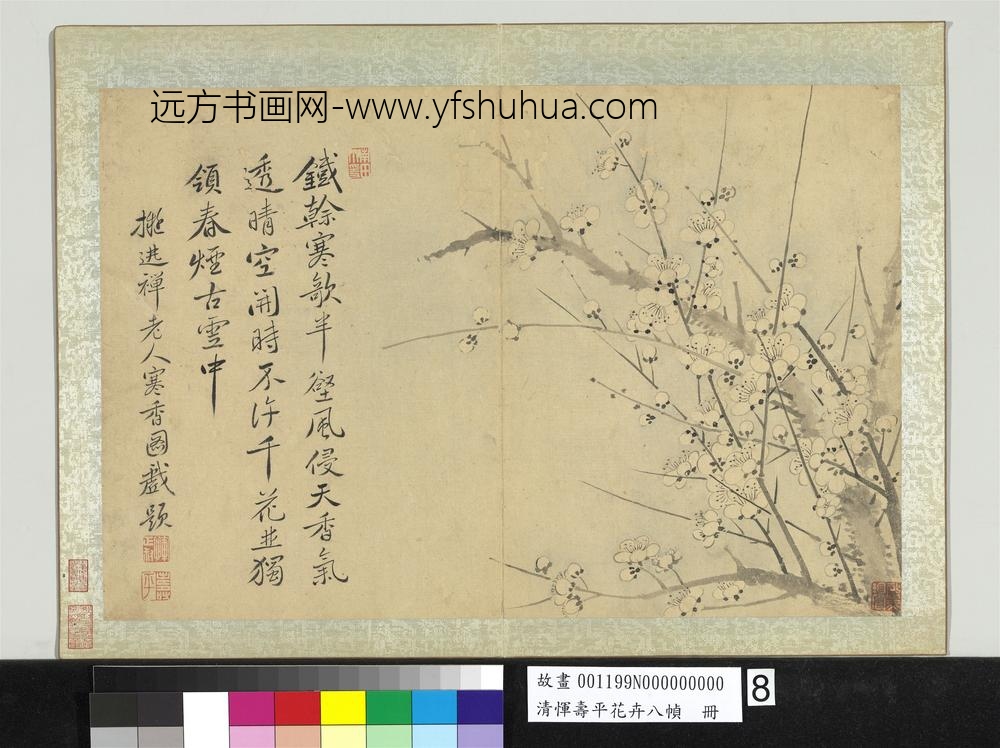 远方书画网-www.yfshuhua.com
鐵幹寒歌半壑風侵天香氣
透晴空開時不許千花並獨
領春煙古雪中
擬逃禪老人寒香圖戲題
故畫 001199N000000000
清惲壽平花卉八幀 冊
8